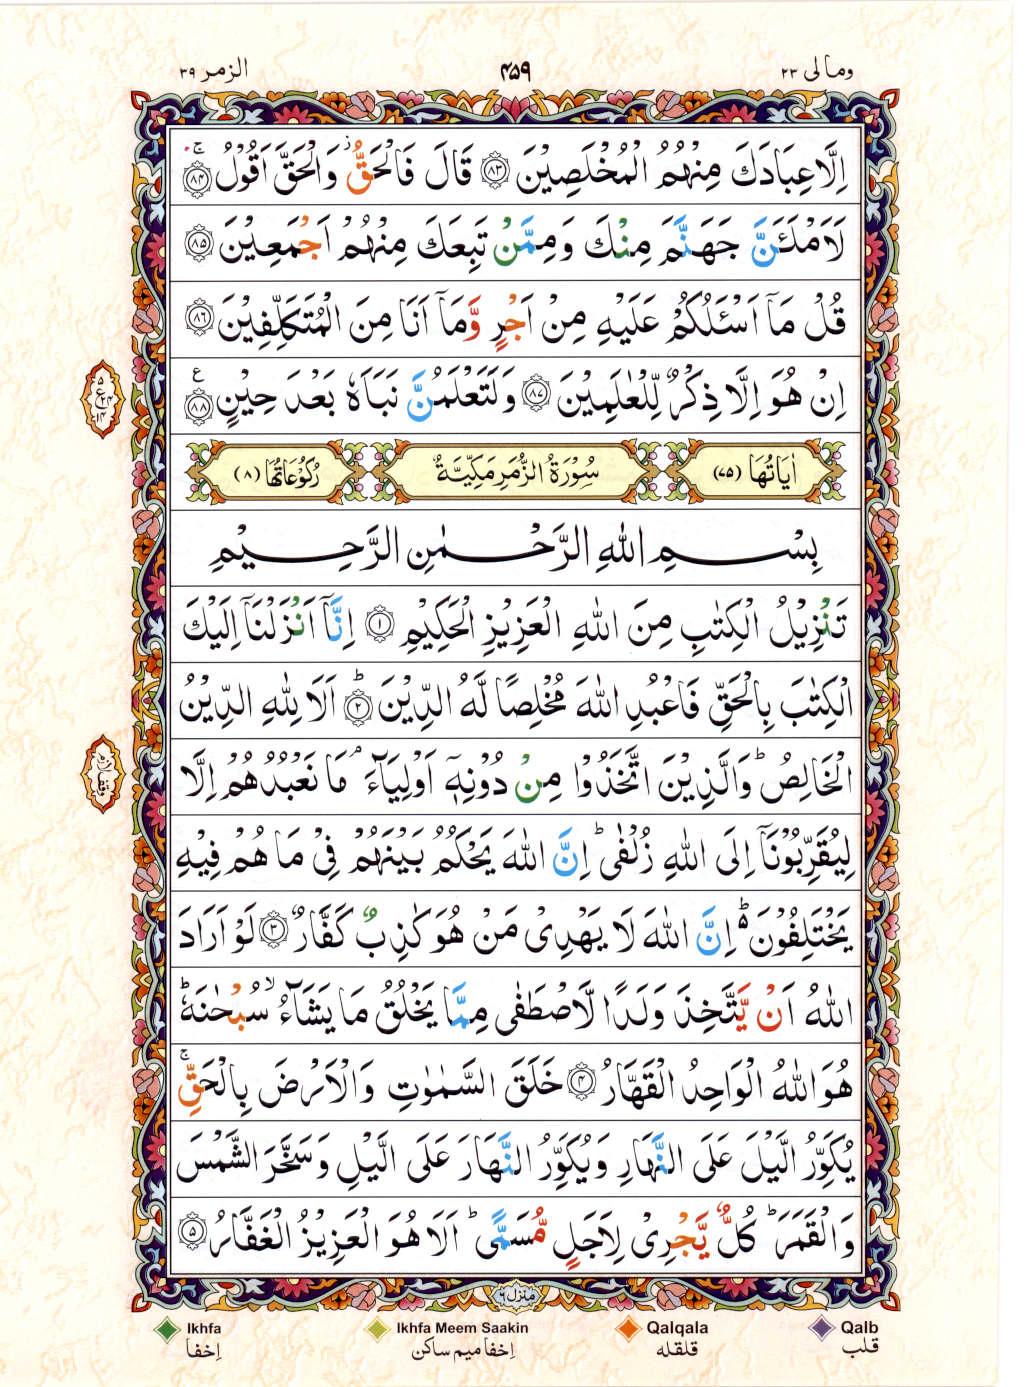 ومالی ۲۳
۴۵۹
الزمر ۳۹
اِلَّا عِبَادَكَ مِنْهُمُ الْمُخْلَصِيْنَ ۸۳ قَالَ فَالْحَقُّ ۫ وَالْحَقَّ اَقُوْلُ ۚ ۸۴
لَاَمْلَـَٔنَّ جَهَنَّمَ مِنْكَ وَمِمَّنْ تَبِعَكَ مِنْهُمْ اَجْمَعِيْنَ ۸۵
قُلْ مَاۤ اَسْـَٔلُكُمْ عَلَيْهِ مِنْ اَجْرٍ وَّمَاۤ اَنَا مِنَ الْمُتَكَلِّفِيْنَ ۸۶
اِنْ هُوَ اِلَّا ذِكْرٌ لِّلْعٰلَمِيْنَ ۸۷ وَلَتَعْلَمُنَّ نَبَاَهٗ بَعْدَ حِيْنٍ ۸۸ ع
اٰيَاتُهَا (۷۵)
سُوْرَةُ الزُّمَرِ مَكِّيَّةٌ
رُكُوْعَاتُهَا (۸)
بِسْمِ اللهِ الرَّحْمٰنِ الرَّحِيْمِ
تَنْزِيْلُ الْكِتٰبِ مِنَ اللهِ الْعَزِيْزِ الْحَكِيْمِ ۱ اِنَّاۤ اَنْزَلْنَاۤ اِلَيْكَ
الْكِتٰبَ بِالْحَقِّ فَاعْبُدِ اللهَ مُخْلِصًا لَّهُ الدِّيْنَ ؕ ۲ اَلَا لِلّٰهِ الدِّيْنُ
الْخَالِصُ ؕ وَالَّذِيْنَ اتَّخَذُوْا مِنْ دُوْنِهٖۤ اَوْلِيَآءَ ۘ مَا نَعْبُدُهُمْ اِلَّا
وقف لازم
لِيُقَرِّبُوْنَاۤ اِلَى اللهِ زُلْفٰى ؕ اِنَّ اللهَ يَحْكُمُ بَيْنَهُمْ فِيْ مَا هُمْ فِيْهِ
يَخْتَلِفُوْنَ ؕ۬ اِنَّ اللهَ لَا يَهْدِىْ مَنْ هُوَ كٰذِبٌ كَفَّارٌ ۳ لَوْ اَرَادَ
اللهُ اَنْ يَّتَّخِذَ وَلَدًا لَّاصْطَفٰى مِمَّا يَخْلُقُ مَا يَشَآءُ ۙ سُبْحٰنَهٗ ؕ
هُوَ اللهُ الْوَاحِدُ الْقَهَّارُ ۴ خَلَقَ السَّمٰوٰتِ وَالْاَرْضَ بِالْحَقِّ ۚ
يُكَوِّرُ الَّيْلَ عَلَى النَّهَارِ وَيُكَوِّرُ النَّهَارَ عَلَى الَّيْلِ وَسَخَّرَ الشَّمْسَ
وَالْقَمَرَ ؕ كُلٌّ يَّجْرِىْ لِاَجَلٍ مُّسَمًّى ؕ اَلَا هُوَ الْعَزِيْزُ الْغَفَّارُ ۵
منزل ۶
Ikhfa
Ikhfa Meem Saakin
Qalqala
Qalb
اِخفا
اِخفا میم ساکن
قلقله
قلب